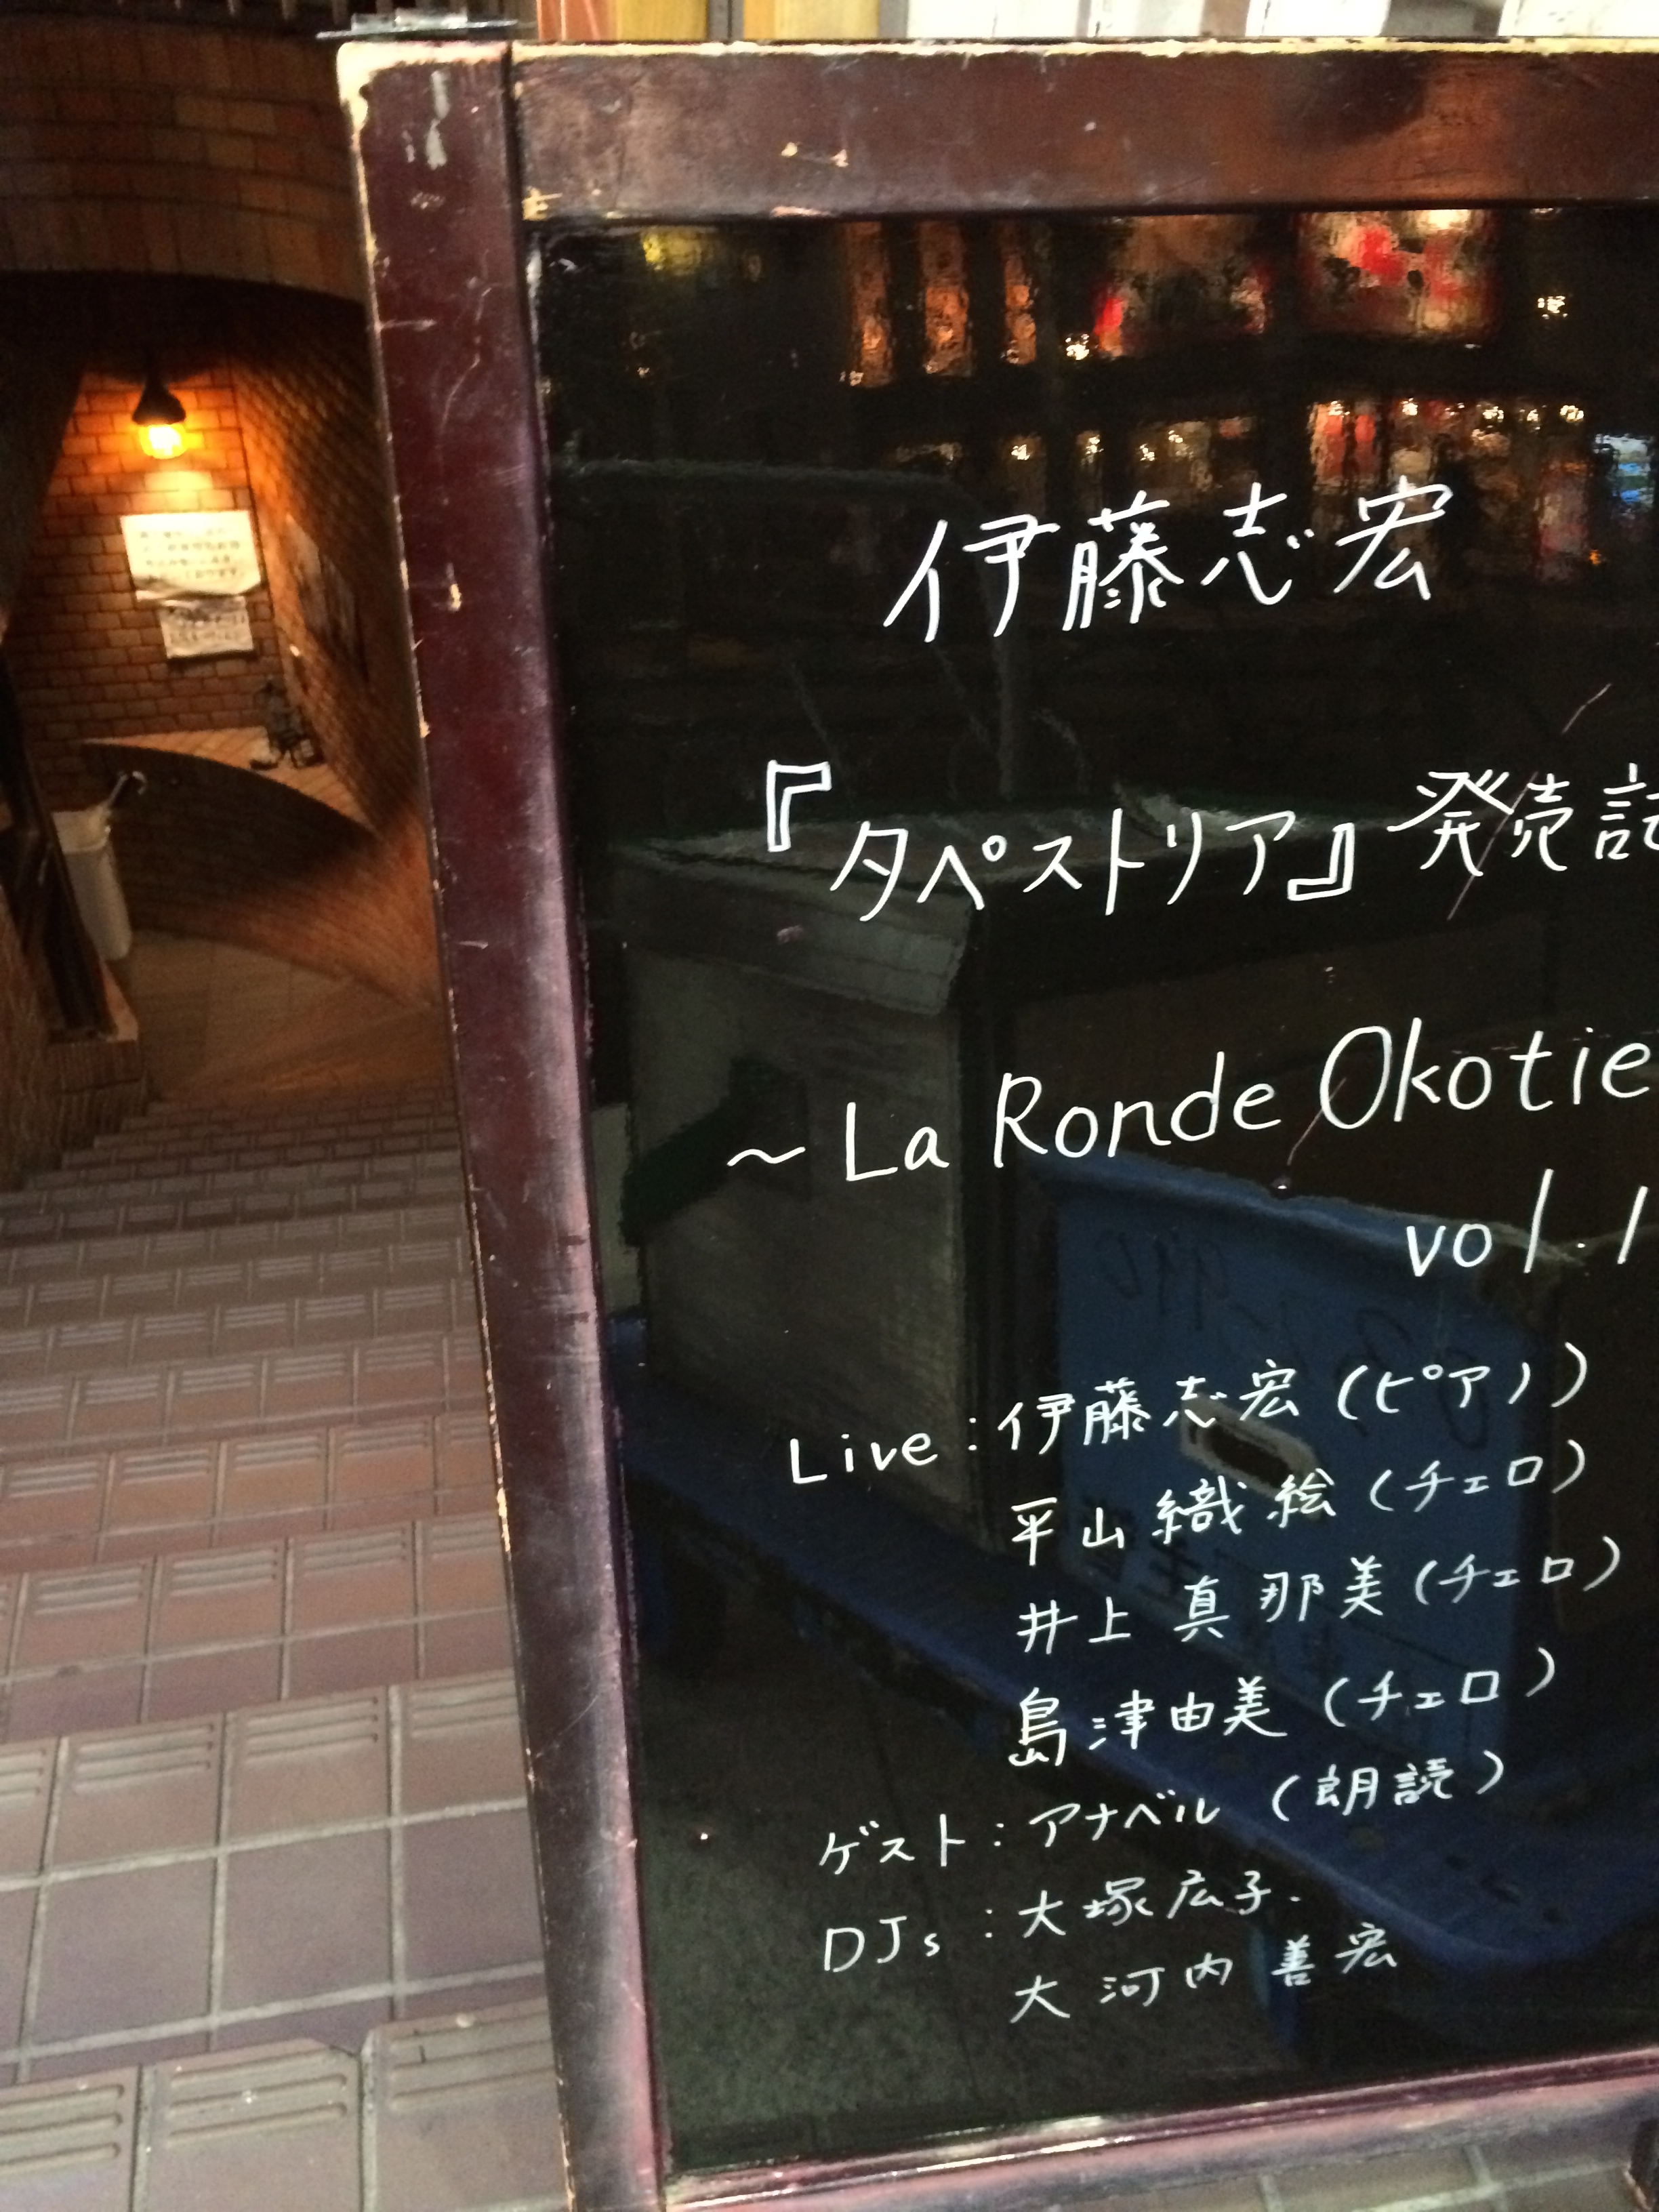 伊藤志宏
『タペストリア』発売記
~ La Ronde Okotie
vol. 1
Live : 伊藤志宏 (ピアノ)
平山織絵 (チェロ)
井上真那美 (チェロ)
島津由美 (チェロ)
ゲスト : アナベル (朗読)
DJs : 大塚広子.
大河内善宏